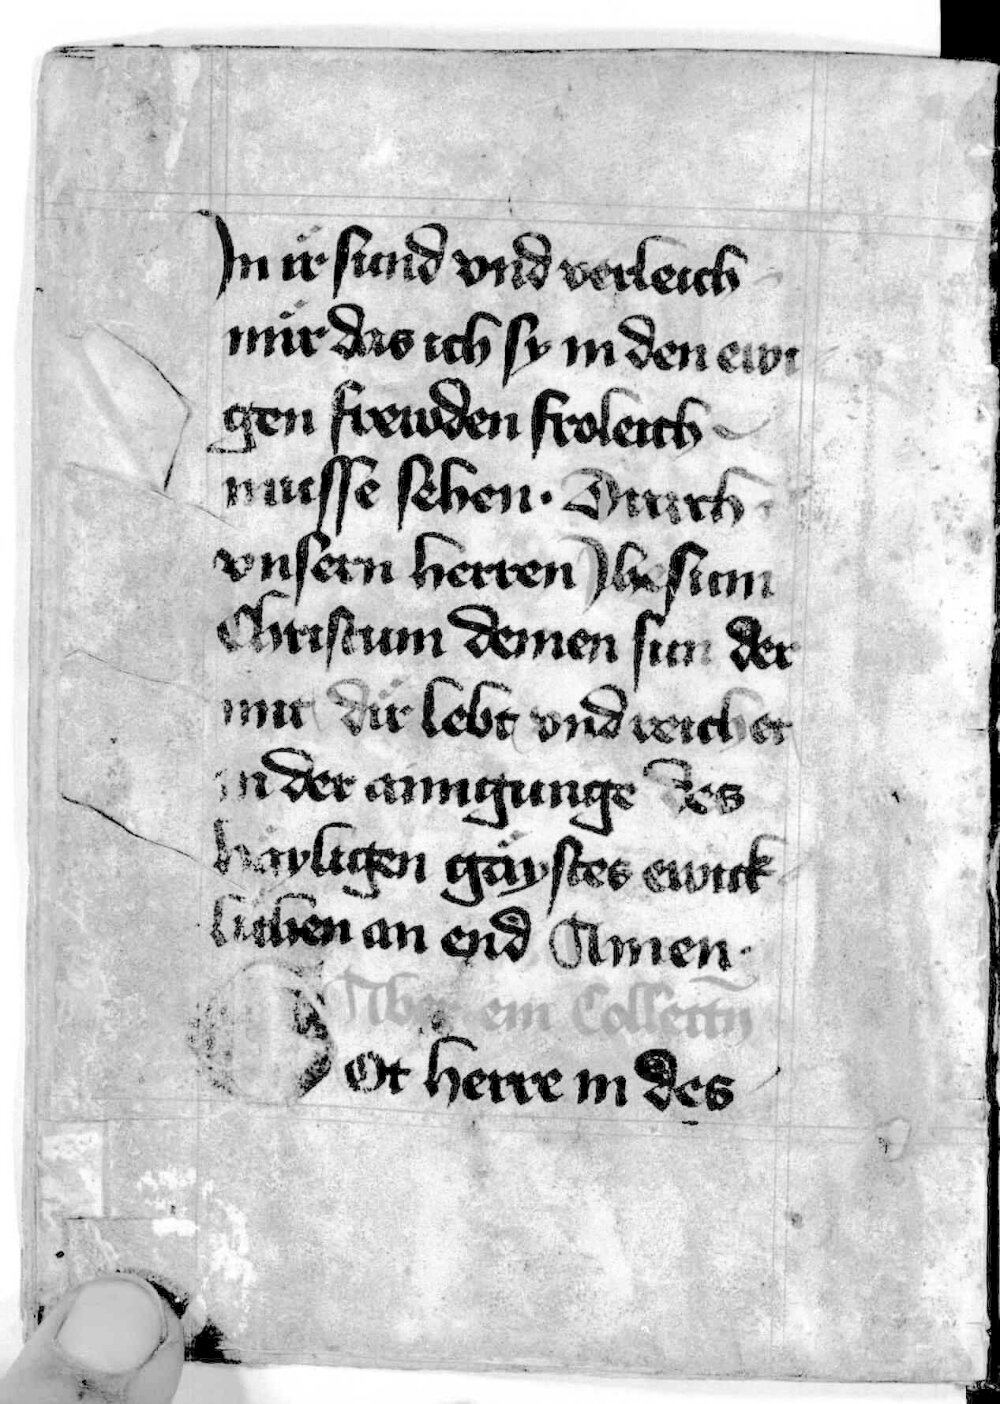 In ir sund vnd verleich
mir das ich sy in den ewi
gen frewden froleich
muesse sehen. Durch
vnsern herren Jhesum
Christum deinen sun der
mit dir lebt vnd reichet
in der ainigunge des
häyligen gäystes ewick
lichen an end Amen.
Aber ein Collectn
Got herre in des